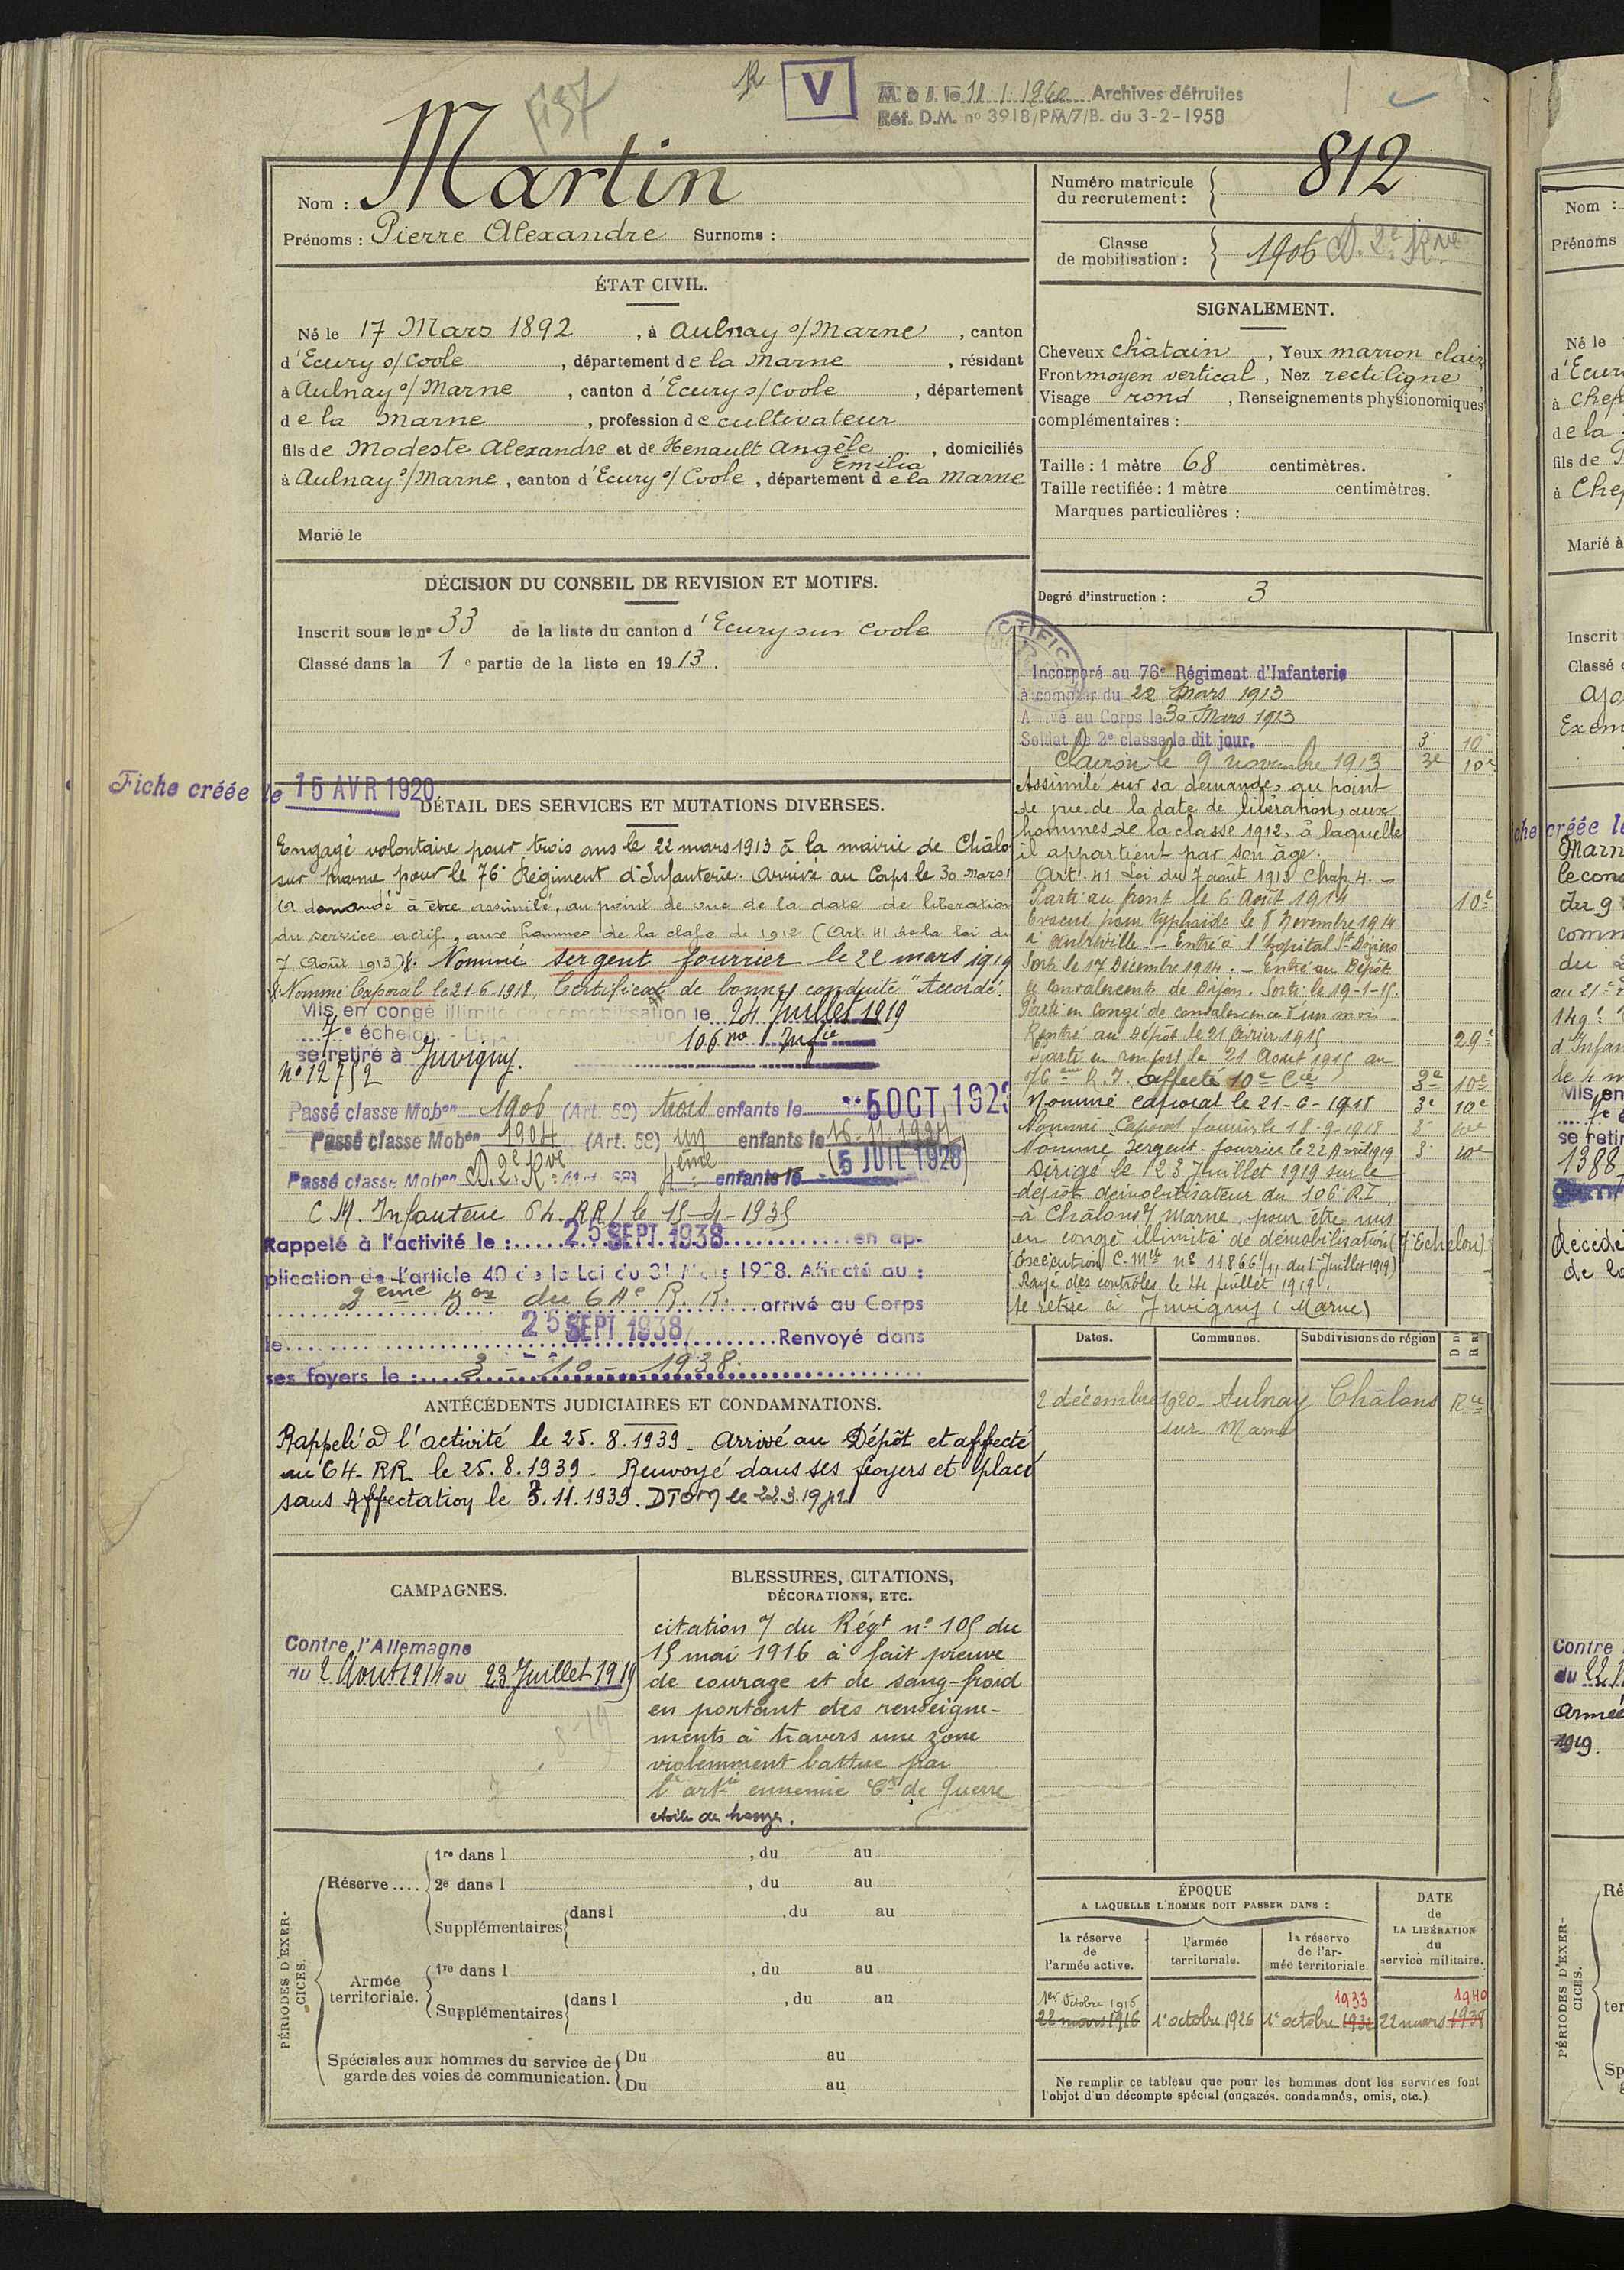 137
V
M. à J. le 11.1.1960 Archives détruites
Réf. D.M. nº 3918/PM/7/B. du 3-2-1958
Nom : Martin
Prénoms : Pierre Alexandre Surnoms :
Numéro matricule du recrutement : 812
Classe de mobilisation : 1906 D. 2e Rve
ÉTAT CIVIL.
Né le 17 Mars 1892, à Aulnay s/Marne, canton
d'Ecury s/Coole, département de la Marne, résidant
à Aulnay s/Marne, canton d'Ecury s/Coole, département
de la Marne, profession de cultivateur
fils de Modeste Alexandre et de Henault Angèle Emilia, domiciliés
à Aulnay s/Marne, canton d'Ecury s/Coole, département de la Marne
Marié le
SIGNALEMENT.
Cheveux châtain, Yeux marron clair
Front moyen vertical, Nez rectiligne,
Visage rond, Renseignements physionomiques
complémentaires :
Taille : 1 mètre 68 centimètres.
Taille rectifiée : 1 mètre centimètres.
Marques particulières :
Degré d'instruction : 3
DÉCISION DU CONSEIL DE REVISION ET MOTIFS.
Inscrit sous le nº 33 de la liste du canton d'Ecury sur Coole
Classé dans la 1e partie de la liste en 1913.
Fiche créée le 15 AVR 1920
DÉTAIL DES SERVICES ET MUTATIONS DIVERSES.
Engagé volontaire pour trois ans le 22 mars 1913 à la mairie de Châlo
sur Marne pour le 76e Régiment d'Infanterie. Arrivé au Corps le 30 mars
a demandé à être assimilé, au point de vue de la date de libération
du service actif, aux hommes de la classe de 1912 (Art. 41 de la loi du
7 Août 1913). Nommé sergent fourrier le 22 mars 1919
Nommé Caporal le 21-6-1918, Certificat de bonne conduite "Accordé".
Mis en congé illimité de démobilisation le 24 Juillet 1919
7e échelon. 106me Infie
se retire à Juvigny.
Nº 12752
Passé classe Mobon 1906 (Art. 58) trois enfants le 5 OCT 1923
Passé classe Mobon 1904 (Art. 58) un enfants le
Passé classe Mobon D. 2e Rve (Art. 58) 4ème enfants le (5 JUIL 1928)
C M. Infanterie 64. RR / le 15-4-1935
Rappelé à l'activité le : 25 SEPT 1938 en ap-
plication de l'article 40 de la Loi du 31 Mars 1928. Affecté au :
du 64e R. R. arrivé au Corps
le 25 SEPT 1938 Renvoyé dans
ses foyers le : 3-10-1938.
Incorporé au 76e Régiment d'Infanterie
à compter du 22 Mars 1913
Arrivé au Corps le 30 Mars 1913
Soldat de 2e classe le dit jour. 3 10
Clairon le 9 novembre 1913 3e 10e
Assimilé sur sa demande, au point
de vue de la date de libération, aux
hommes de la classe 1912, à laquelle
il appartient par son âge.
Art. 41 Loi du 7 août 1913 Chap. 4. –
Parti au front le 6 Août 1914 10e
Evacué pour typhoïde le 8 Novembre 1914
à Aubréville. – Entré à l'hopital
Sorti le 17 Décembre 1914. – Entré au Dépôt
de convalescents de Dijon. Sorti le 19-1-15.
Parti en congé de convalescence d'un mois
Rentré au Dépôt le 21 Février 1915 29e
Parti en renfort le 21 Août 1915 au
76ème R.I. affecté 10e Cie 3e 10e
Nommé caporal le 21-6-1918 3e 10e
Nommé Caporal fourrier le 18-9-1918 3 10e
Nommé Sergent fourrier le 22 Avril 1919 3 10e
Dirigé le 23 Juillet 1919 sur le
dépôt démobilisateur du 106 R.I
à Châlons s/ Marne, pour être mis
en congé illimité de démobilisation (7 Echelon)
(Exécution C. Mlle nº 11866 1/11 du 1 Juillet 1919)
Rayé des contrôles le 24 Juillet 1919.
se retire à Juvigny (Marne)
Dates. Communes. Subdivisions de région D R
2 décembre 1920 Aulnay sur Marne Châlons Rce
ANTÉCÉDENTS JUDICIAIRES ET CONDAMNATIONS.
Rappelé à l'activité le 25.8.1939 – Arrivé au Dépôt et affecté
au 64. RR le 25.8.1939 – Renvoyé dans ses foyers et placé
sans Affectation le 3.11.1939.
CAMPAGNES.
Contre l'Allemagne
du 2 Août 1914 au 23 Juillet 1919
BLESSURES, CITATIONS,
DÉCORATIONS, ETC.
citation 7 du Régt nº 105 du
15 mai 1916 à fait preuve
de courage et de sang-froid
en portant des renseigne-
ments à travers une zone
violemment battue par
l'artie ennemie Cx de Guerre
étoile de bronze.
PÉRIODES D'EXERCICES.
Réserve....
1re dans l , du au
2e dans l , du au
Supplémentaires dans l , du au
Armée territoriale.
1re dans l , du au
Supplémentaires dans l , du au
Spéciales aux hommes du service de garde des voies de communication.
Du au
Du au
ÉPOQUE
A LAQUELLE L'HOMME DOIT PASSER DANS :
la réserve de l'armée active. l'armée territoriale. la réserve de l'armée territoriale.
DATE de LA LIBÉRATION du service militaire.
1er Octobre 1915 1933 1940
22 mars 1916 1er octobre 1926 1er octobre 1932 22 mars 1938
Ne remplir ce tableau que pour les hommes dont les services font
l'objet d'un décompte spécial (engagés, condamnés, omis, etc.)